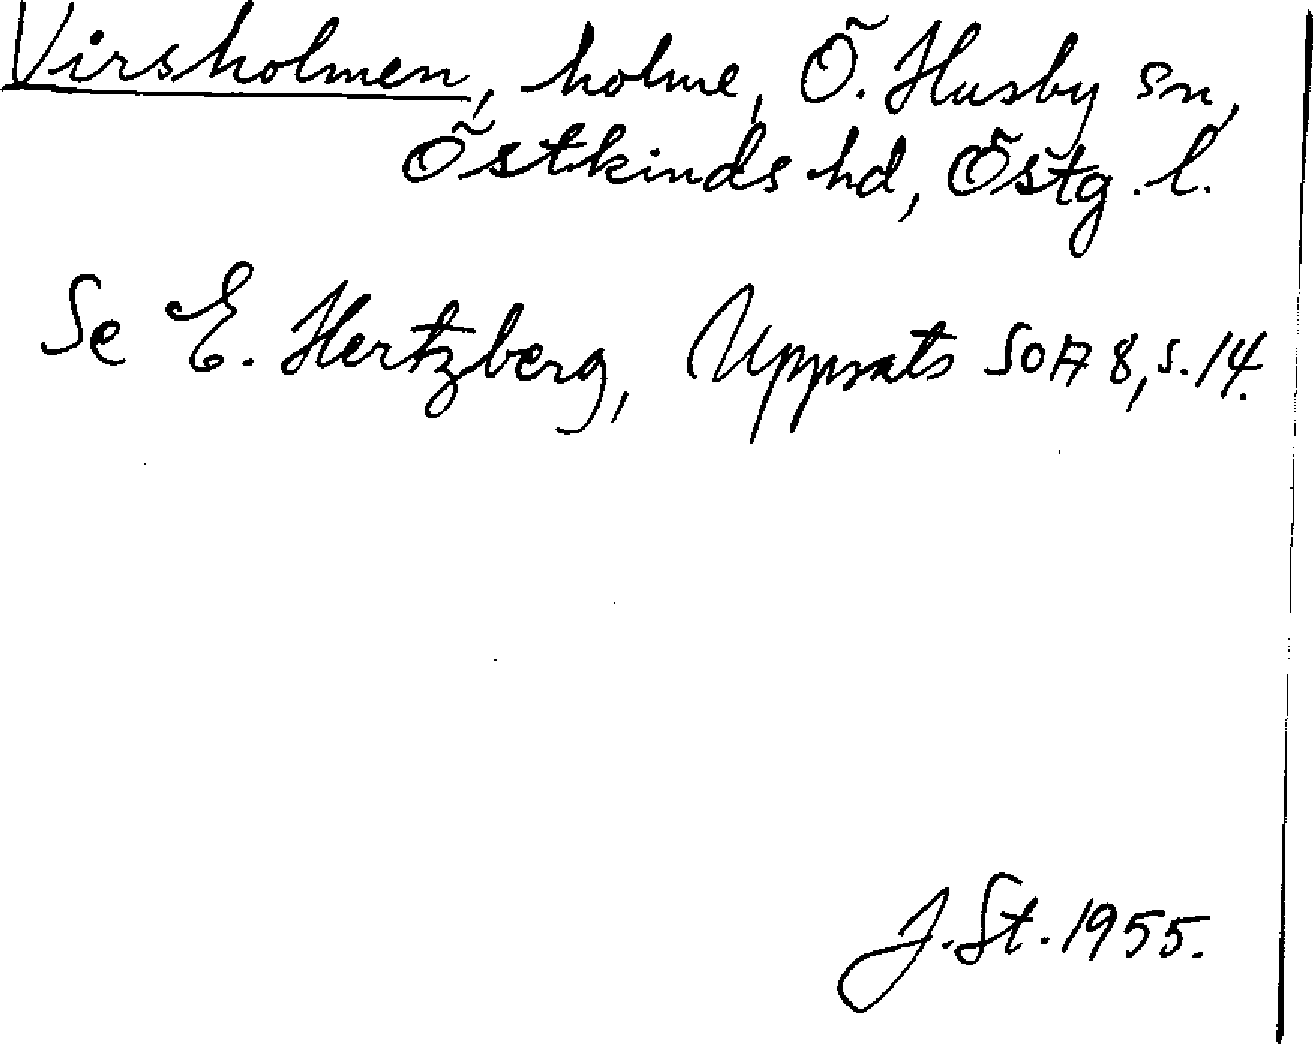 Virsholmen, holme, Ö. Husby sn,
Östkinds hd, Östg. l.
Se E. Hertzberg, Uppsats SOA 8, s. 14.
J. St. 1955.